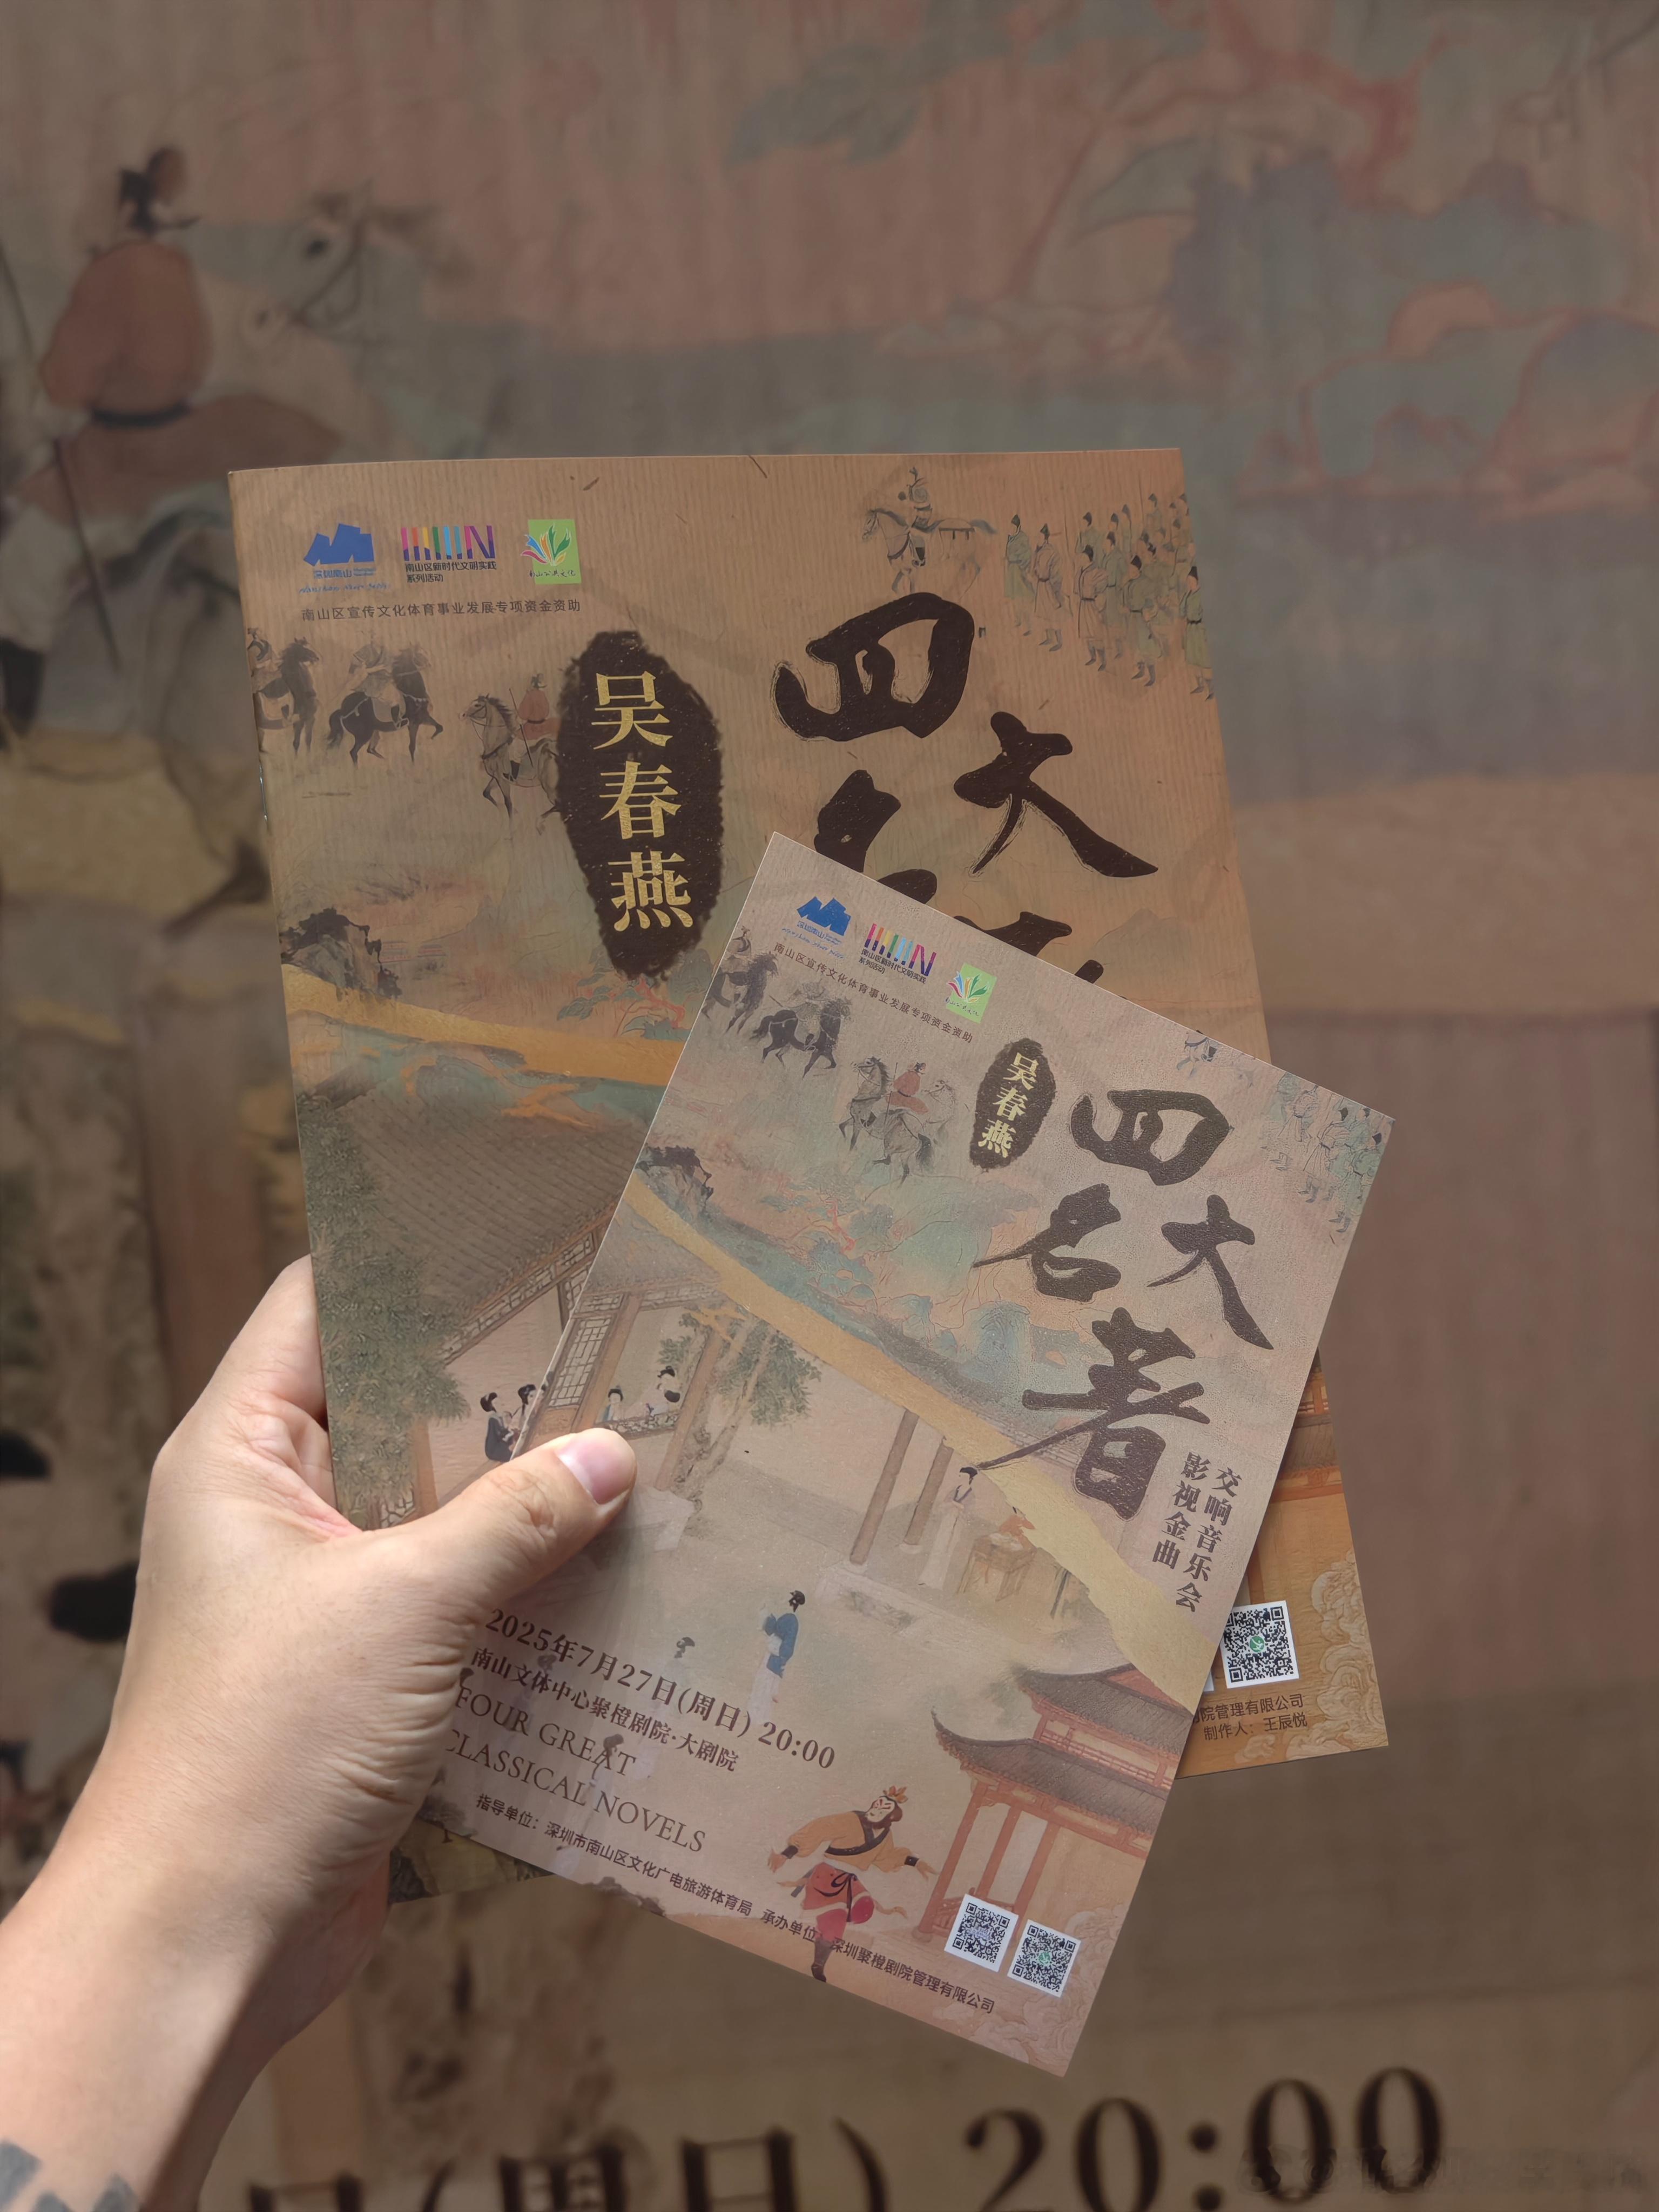 深圳南山
南山区新时代文明实践
系列活动
南山公共文化
南山区宣传文化体育事业发展专项资金资助
吴春燕
四大
院管理有限公司
制作人：王辰悦
深圳南山
南山区新时代文明实践
系列活动
南山公共文化
南山区宣传文化体育事业发展专项资金资助
吴春燕
四大
名著
交响音乐会
影视金曲
2025年7月27日(周日) 20:00
南山文体中心聚橙剧院·大剧院
FOUR GREAT
CLASSICAL NOVELS
指导单位：深圳市南山区文化广电旅游体育局 承办单位：深圳聚橙剧院管理有限公司
日(周日) 20:00